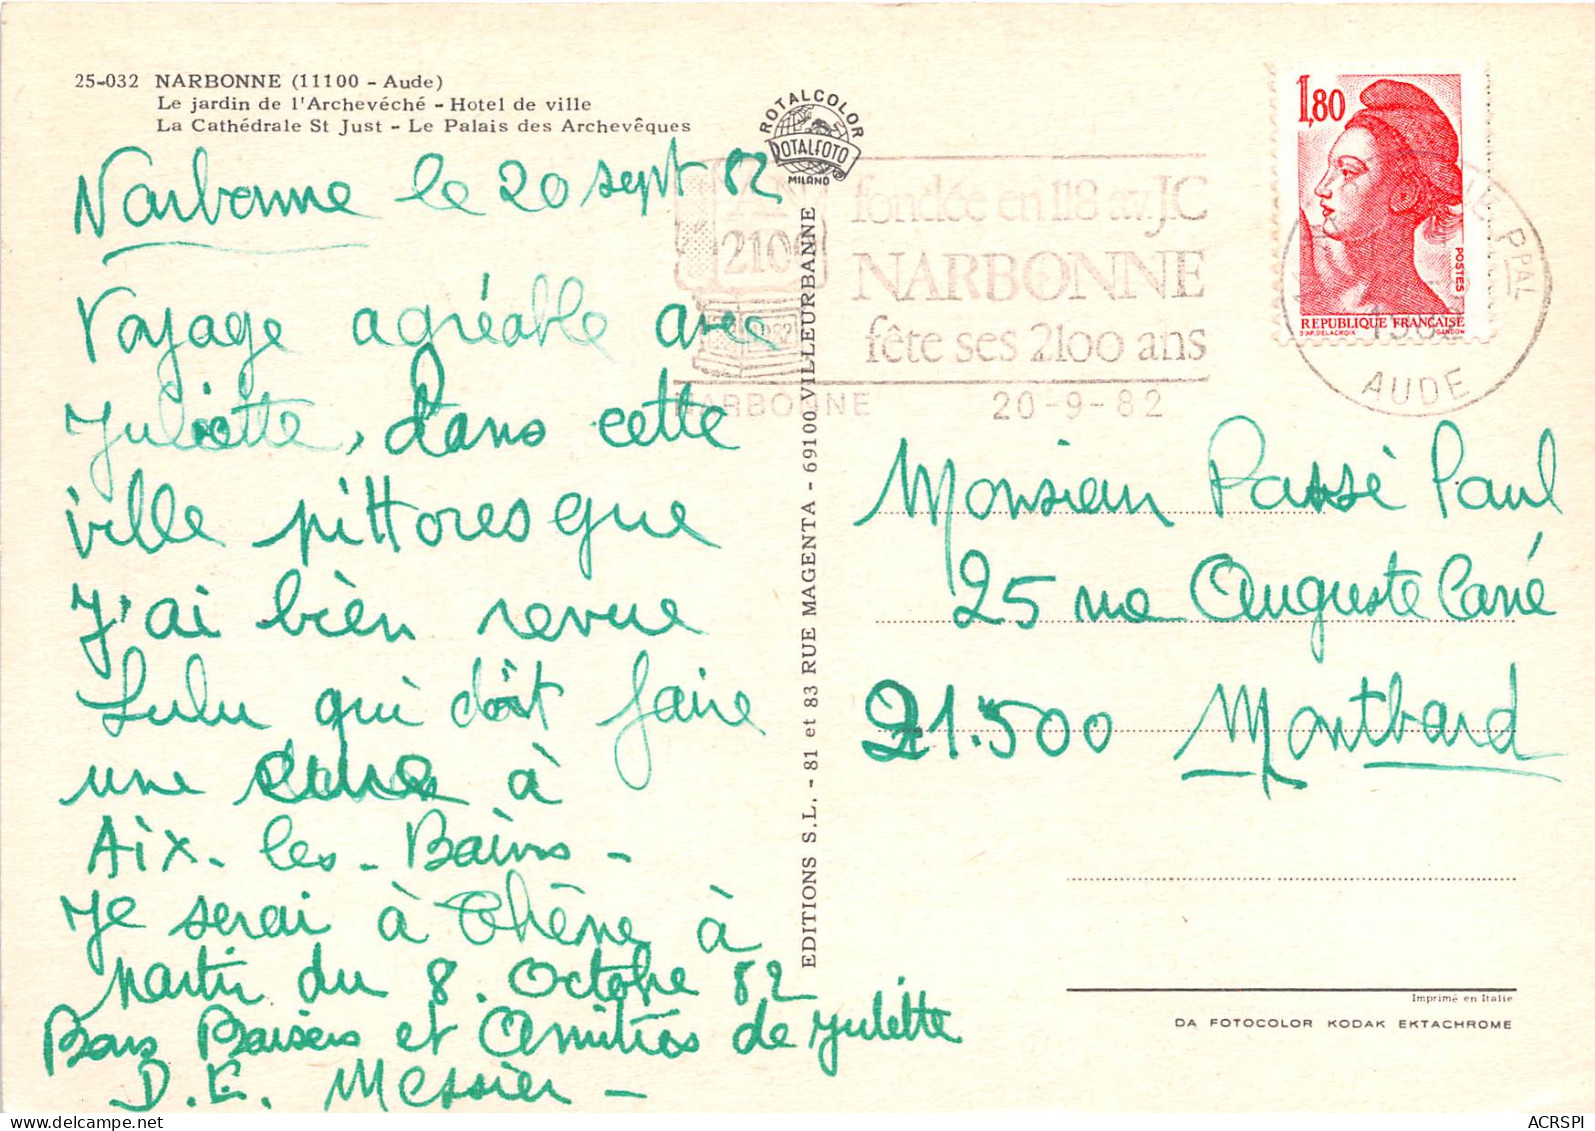 25-032 NARBONNE (11100 - Aude)
Le jardin de l'Archevéché - Hotel de ville
La Cathédrale St Just - Le Palais des Archevêques
ROTALCOLOR
ROTALFOTO
MILANO
Narbonne le 20 sept 82
Voyage agréable avec
Juliette, dans cette
ville pittoresque
J'ai bien revue
Lulu qui doit faire
une cure à
Aix-les-Bains -
Je serai à Chêne à
partir du 8. Octobre 82
Bons Baisers et Amitiés de Juliette
D. E. Messier -
EDITIONS S.L. - 81 et 83 RUE MAGENTA - 69100 VILLEURBANNE
2100
1982
fondée en 118 av. JC
NARBONNE
fête ses 2100 ans
NARBONNE 20-9-82
1,80
POSTES
REPUBLIQUE FRANÇAISE
D'AP. DELACROIX GANDON
PPAL
1982
AUDE
Monsieur Passé Paul
25 rue Auguste Carré
21.500 Montbard
Imprimé en Italie
DA FOTOCOLOR KODAK EKTACHROME
ACRSPI